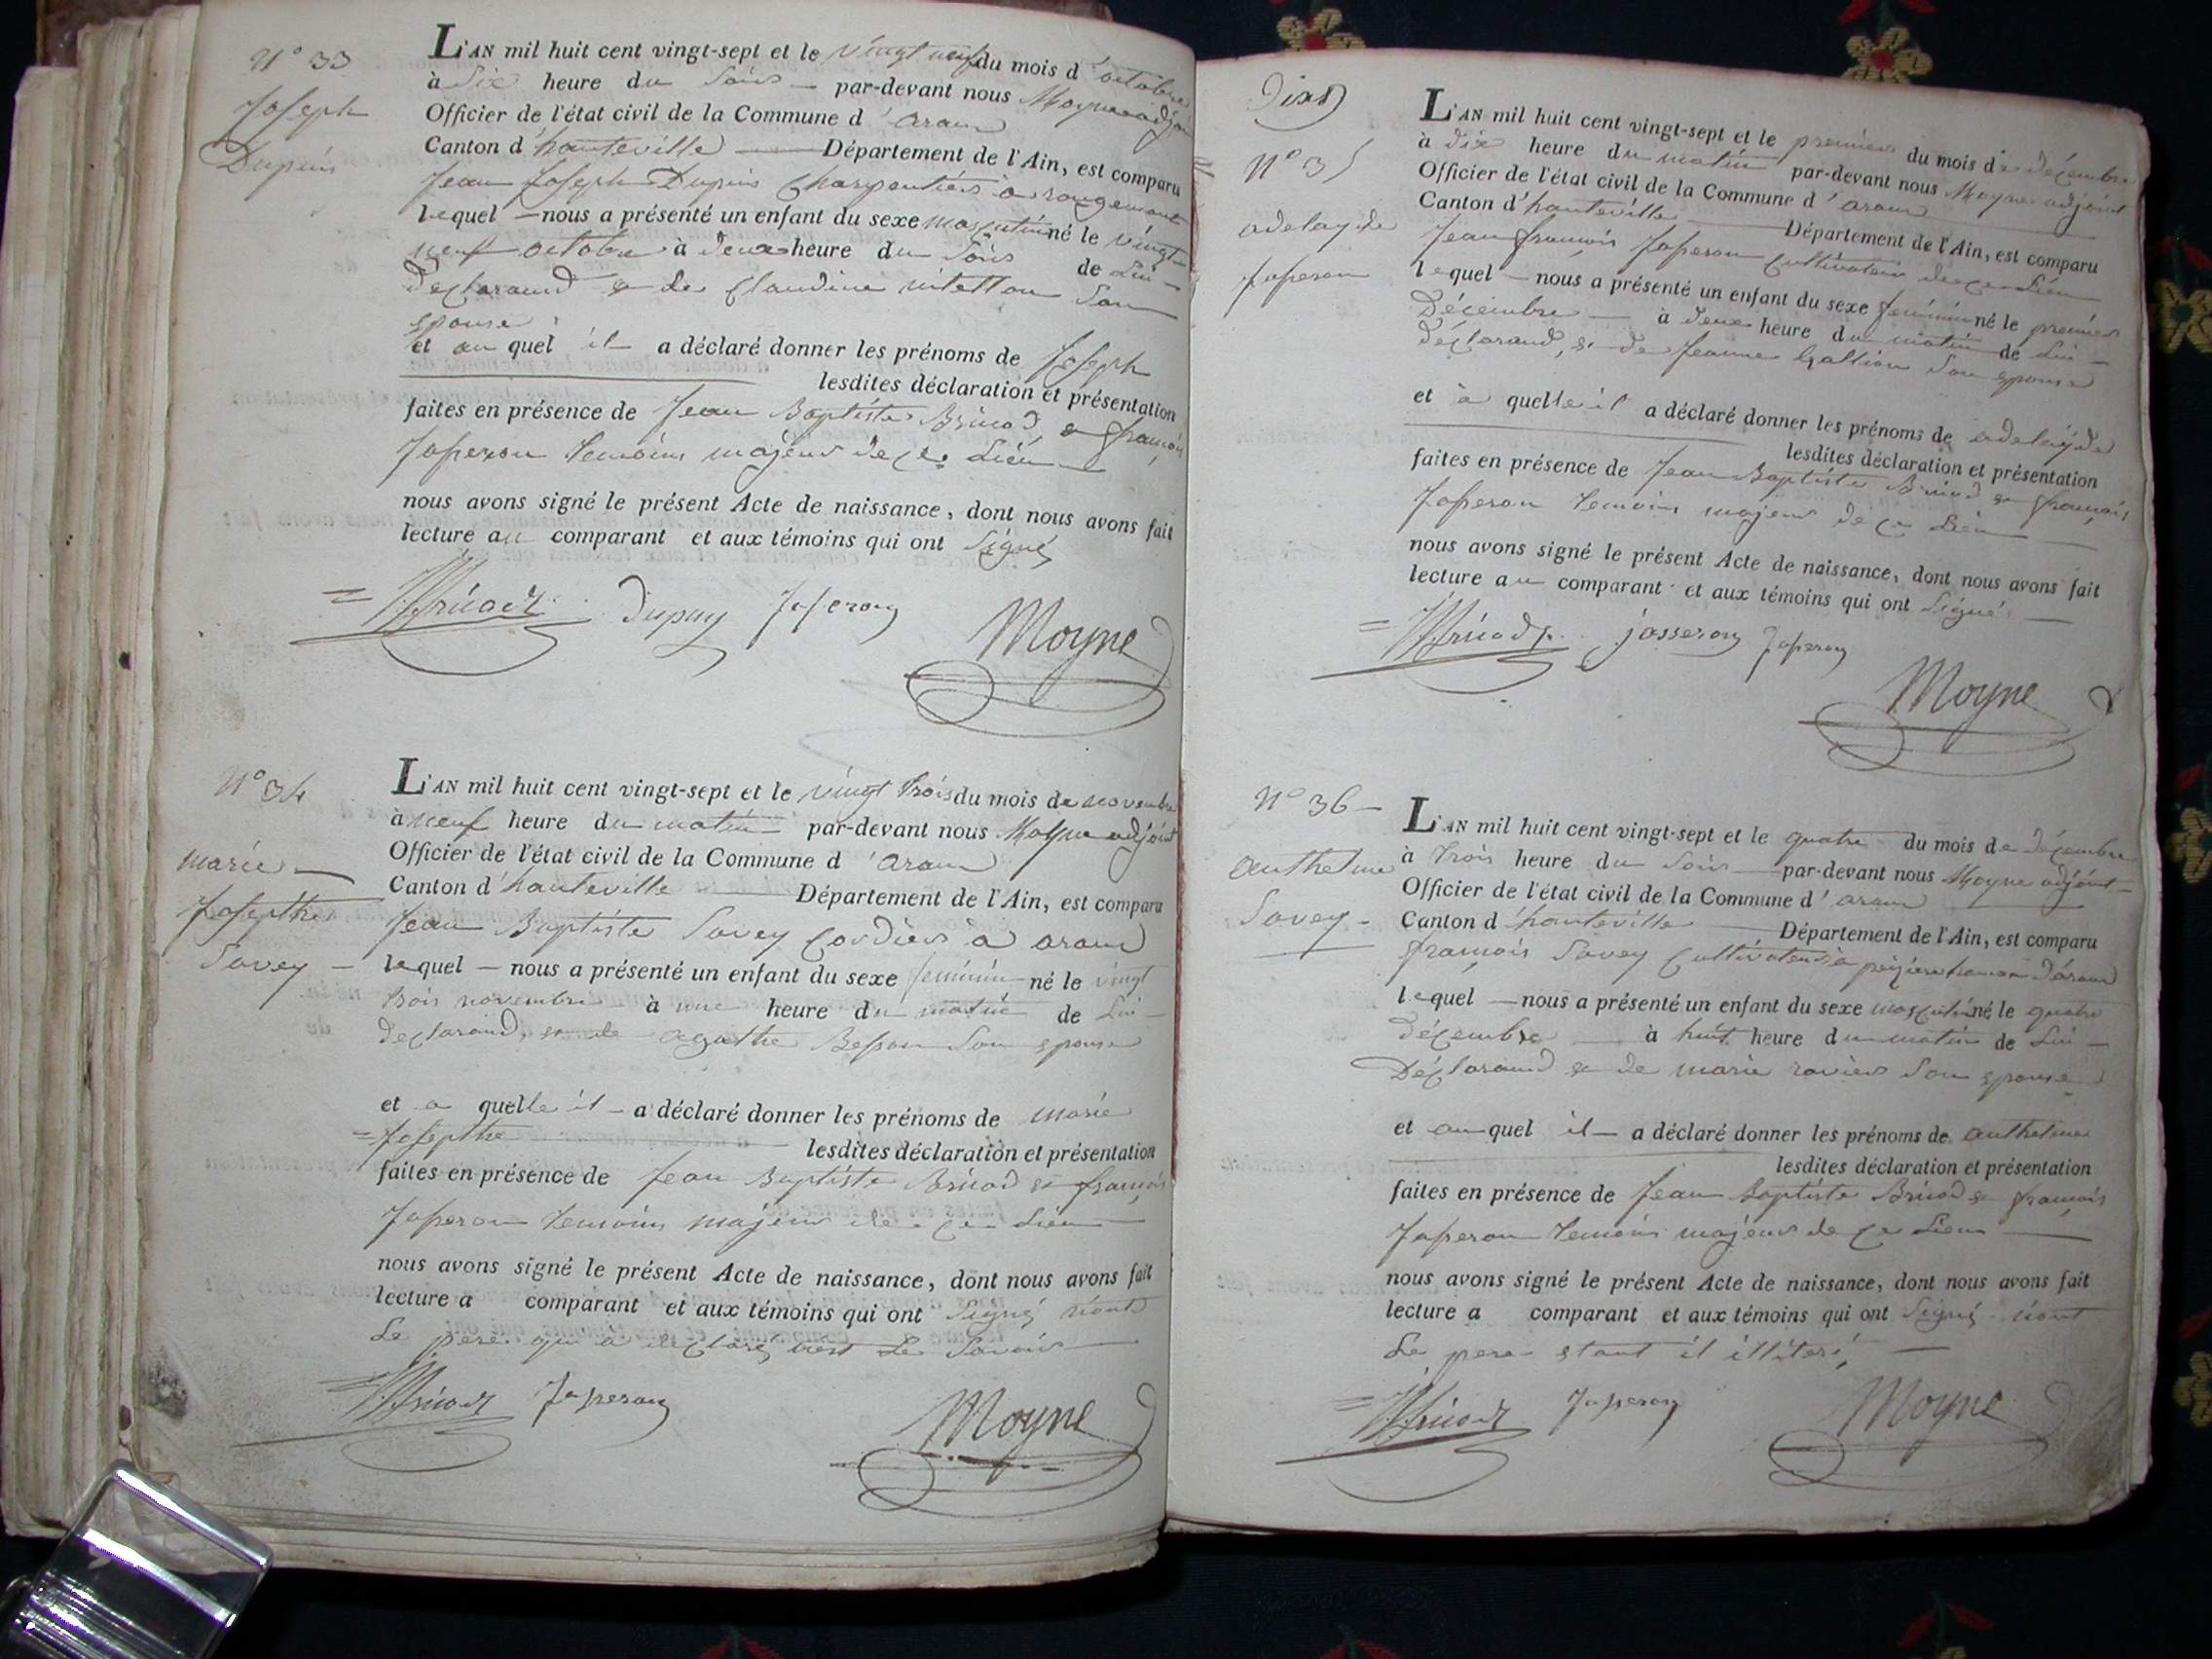 N° 33
Joseph
Dupuis
L'AN mil huit cent vingt-sept et le vingt neuf du mois d'octobre
à Six heure du Soir — par-devant nous Moyne adjoint
Officier de l'état civil de la Commune d'aranc
Canton d'hauteville — Département de l'Ain, est comparu
Jean Joseph Dupuis Charpentier à rougemont
lequel — nous a présenté un enfant du sexe masculin né le vingt
neuf octobre à deux heure du Soir de Lui —
declarand & de Claudine Son
epouse
et au quel il — a déclaré donner les prénoms de Joseph
lesdites déclaration et présentation
faites en présence de Jean Baptiste Bricod & françois
Josseron temoins majeurs de ce Lieu —
nous avons signé le présent Acte de naissance, dont nous avons fait
lecture au comparant et aux témoins qui ont Signé
Bricod Dupuy Josseron
Moyne
N° 34
marie —
Josepthe
Savey —
L'AN mil huit cent vingt-sept et le vingt trois du mois de novembre
à neuf heure du matin par-devant nous Moyne adjoint
Officier de l'état civil de la Commune d'aranc
Canton d'hauteville — Département de l'Ain, est comparu
Jean Baptiste Savey Cordier à aranc
lequel — nous a présenté un enfant du sexe feminin né le vingt
trois novembre à une heure du matin de Lui —
declarand, & de agathe Besson Son epouse
et a quelle il — a déclaré donner les prénoms de marie
= Josepthe — lesdites déclaration et présentation
faites en présence de Jean Baptiste Bricod & françois
Josseron temoins majeurs de ce Lieu —
nous avons signé le présent Acte de naissance, dont nous avons fait
lecture a comparant et aux témoins qui ont Signé non
Le pere qui a declaré ne Le Savoir —
Bricod Josseron
Moyne
Dix
N° 35
adelayde
Josseron
L'AN mil huit cent vingt-sept et le premier du mois de décembre
à dix heure du matin par-devant nous Moyne adjoint
Officier de l'état civil de la Commune d'aranc
Canton d'hauteville — Département de l'Ain, est comparu
Jean françois Josseron Cultivateur de ce Lieu
lequel — nous a présenté un enfant du sexe feminin né le premier
Décembre — à deux heure du matin de Lui —
déclarand, & de Jeanne Gallion Son epouse
et à quelle il a déclaré donner les prénoms de adelayde
lesdites déclaration et présentation
faites en présence de Jean Baptiste Bricod & françois
Josseron temoins majeurs de ce Lieu —
nous avons signé le présent Acte de naissance, dont nous avons fait
lecture au comparant et aux témoins qui ont Signé —
Bricod josseron Josseron
Moyne
N° 36 —
anthelme
Savey —
L'AN mil huit cent vingt-sept et le quatre du mois de décembre
à trois heure du Soir — par-devant nous Moyne adjoint —
Officier de l'état civil de la Commune d'aranc
Canton d'hauteville — Département de l'Ain, est comparu
françois Savey Cultivateur à d'aranc
lequel — nous a présenté un enfant du sexe masculin né le quatre
décembre — à huit heure du matin de Lui —
Déclarand & de marie ravier Son epouse
et au quel il — a déclaré donner les prénoms de anthelme
lesdites déclaration et présentation
faites en présence de Jean Baptiste Bricod & françois
Josseron temoins majeurs de ce Lieu —
nous avons signé le présent Acte de naissance, dont nous avons fait
lecture a comparant et aux témoins qui ont Signé non
Le pere etant il illiteré —
Bricod Josseron
Moyne